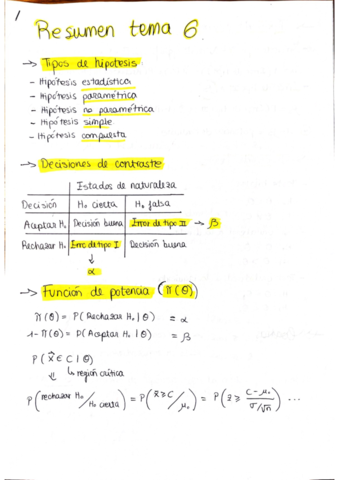 1
Resumen tema 6
→ Tipos de hipótesis
- Hipótesis estadística
- Hipótesis paramétrica
- Hipótesis no paramétrica
- Hipótesis simple
- Hipótesis compuesta
→ Decisiones de contraste
Estados de naturaleza
Decisión H₀ cierta H₀ falsa
Aceptar H₀ Decisión buena Error de tipo II → β
Rechazar H₀ Error de tipo I Decisión buena
↓
α
→ Función de potencia (π(θ))
π(θ) = P(Rechazar H₀ | θ) = α
1-π(θ) = P(Aceptar H₀ | θ) = β
P(X̄ ∈ C | θ)
↳ región crítica
P(rechazar H₀ / H₀ cierta) = P(x̄ ≥ C / μ₀) = P(z ≥ (C-μ₀) / (σ/√n)) ...